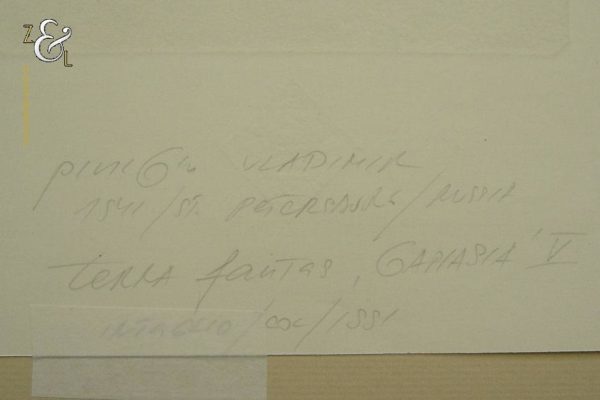 Z & L
VLADIMIR
1941/ST. PETERSBURG/RUSSIA
TERRA FANTAS, 'GAMASIA' V
INTAGLIO/COL/1991